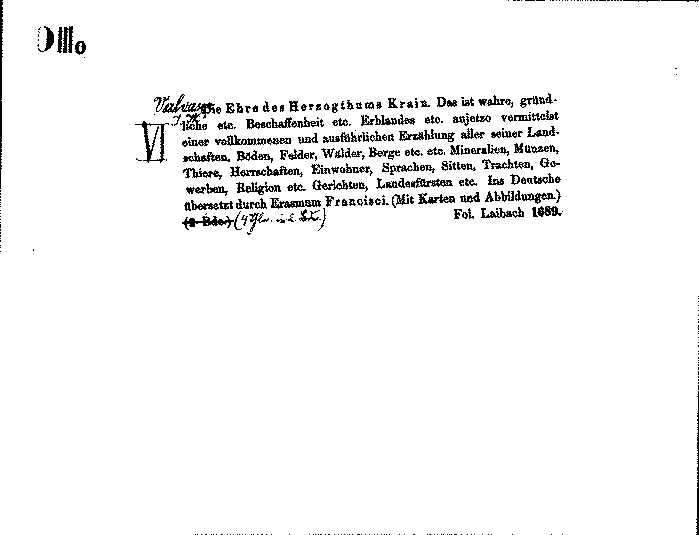 OIIIo
Valvasor
J. W.
VI
Die Ehre des Herzogthums Krain. Das ist wahre, gründ-
liche etc. Beschaffenheit etc. Erblandes etc. anjetzo vermittelst
einer vollkommenen und ausführlichen Erzählung aller seiner Land-
schaften, Böden, Felder, Wälder, Berge etc. etc. Mineralien, Münzen,
Thiere, Herrschaften, Einwohner, Sprachen, Sitten, Trachten, Ge-
werben, Religion etc. Gerichten, Landesfürsten etc. Ins Deutsche
übersetzt durch Erasmum Francisci. (Mit Karten und Abbildungen.)
(2 Bde.) (4 Thle. in 2 Bd.) Fol. Laibach 1689.